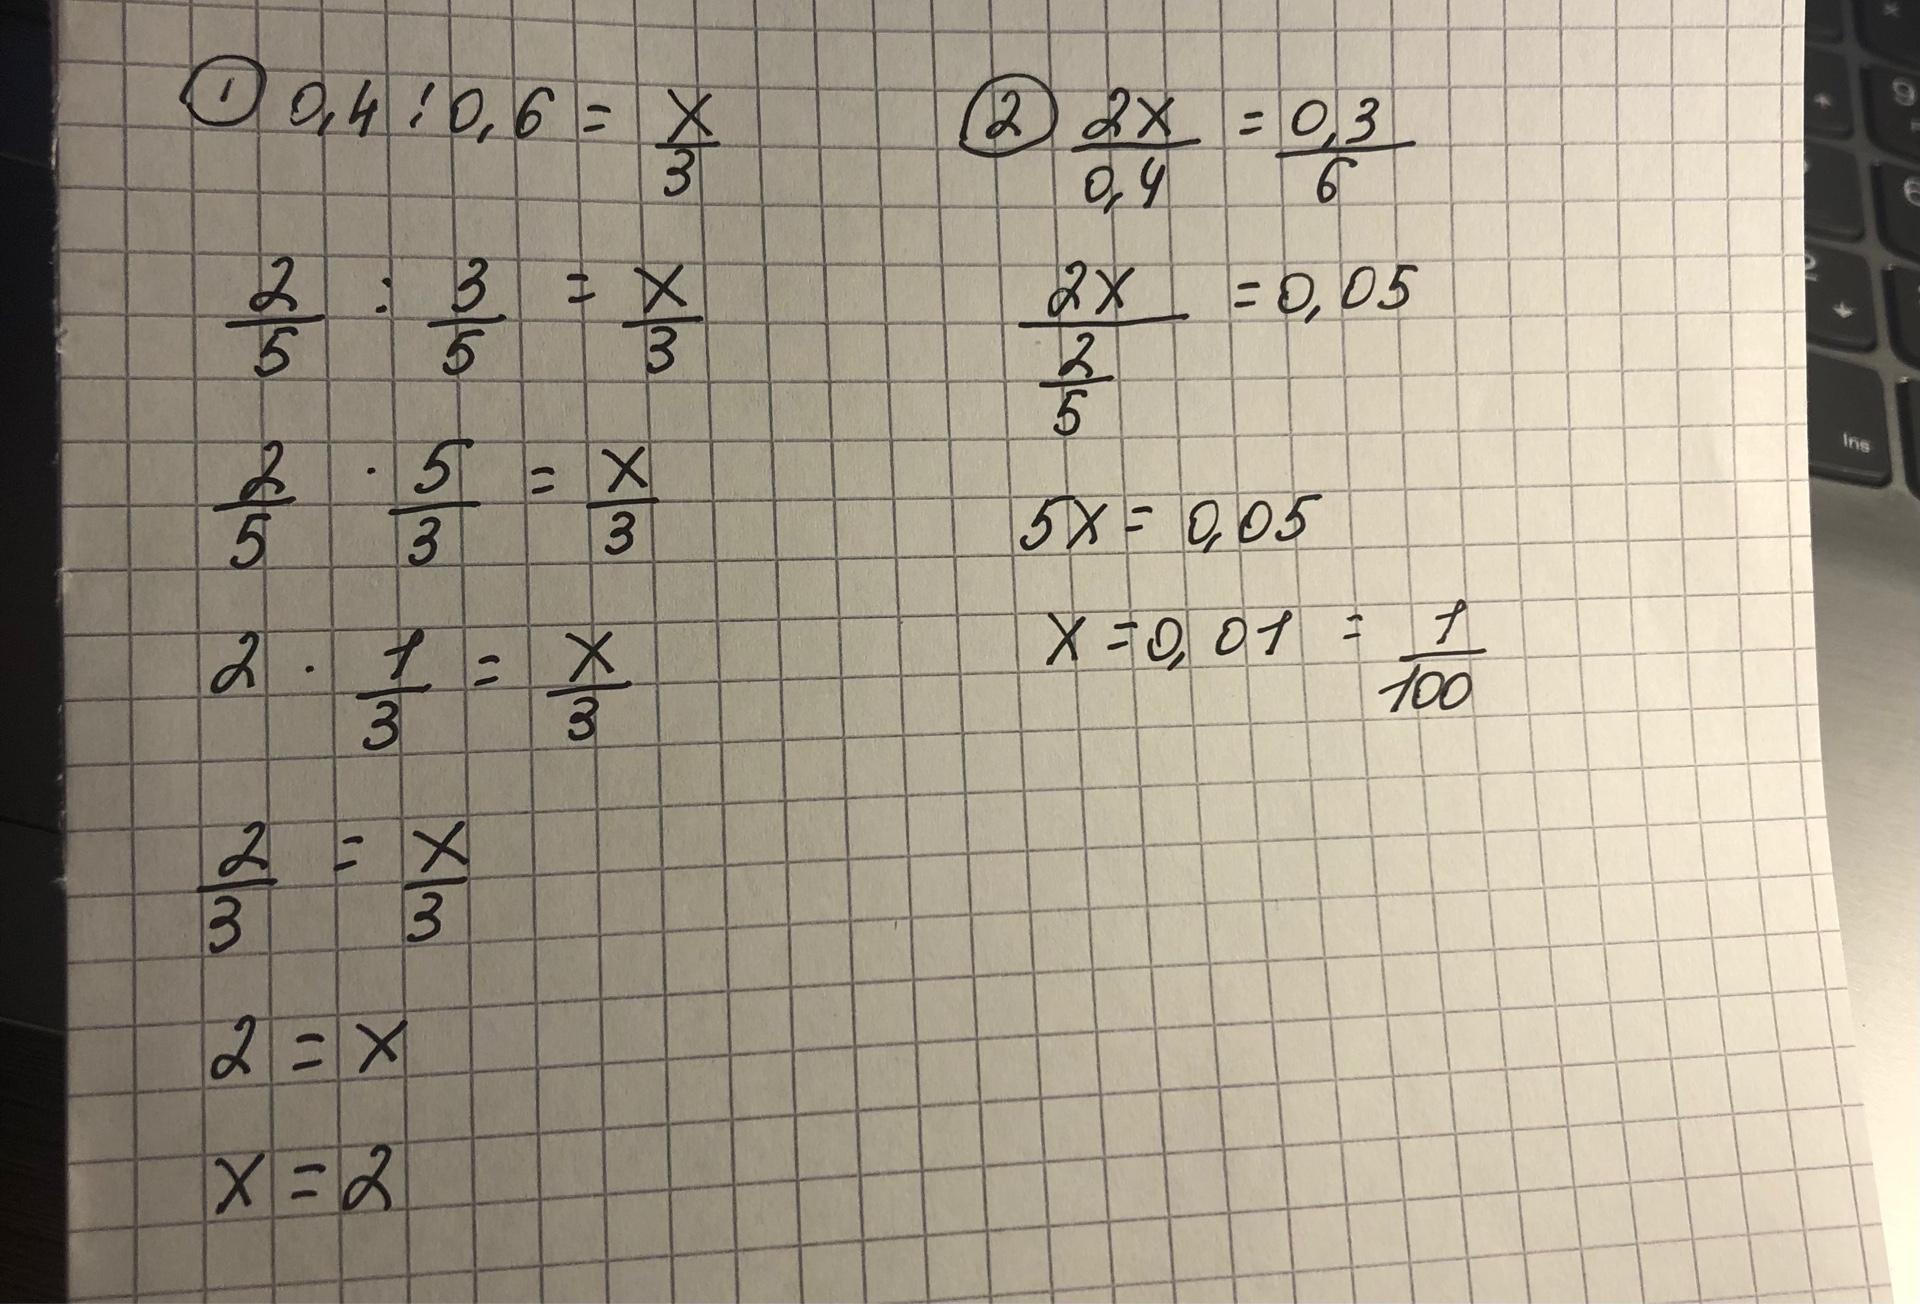 ① 0,4 : 0,6 = x/3
2/5 : 3/5 = x/3
2/5 · 5/3 = x/3
2 · 1/3 = x/3
2/3 = x/3
2 = x
x = 2
② 2x/0,4 = 0,3/6
2x/(2/5) = 0,05
5x = 0,05
x = 0,01 = 1/100
9
6
Ins